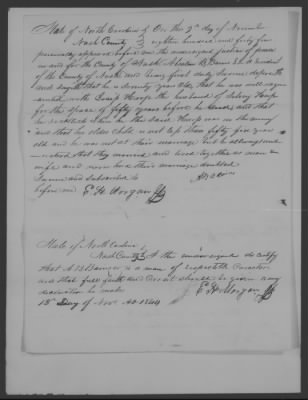 State of North Carolina } On the 2th day of Novemr
Nash County } eighteen hundred and forty four
personally appeared before me the undersigned Justice of peace
in and for the County of Nash Abselum B. Baines Sr. A resident
of the County of Nash and being first duly sworn deposeth
and sayeth that he is seventy years Old, that he was well
with the husband of
for the space of fifty years before he died, and that
he recollects when he the said was in the army
and that his oldest child is not less than fifty five years
old and he was not at their marriage but he always
that they married and lived together as man &
wife and never knew their marriage doubted
Sworn and subscribed to
before me E. H. Morgan JP
State of North Carolina }
Nash County } I the undersigned do certify
that A B Baines is a man of respectable Caracter
and that full faith and Credit should be given any
declaration he makes
13th Day of Nov. AD 1844
E. H. Morgan JP